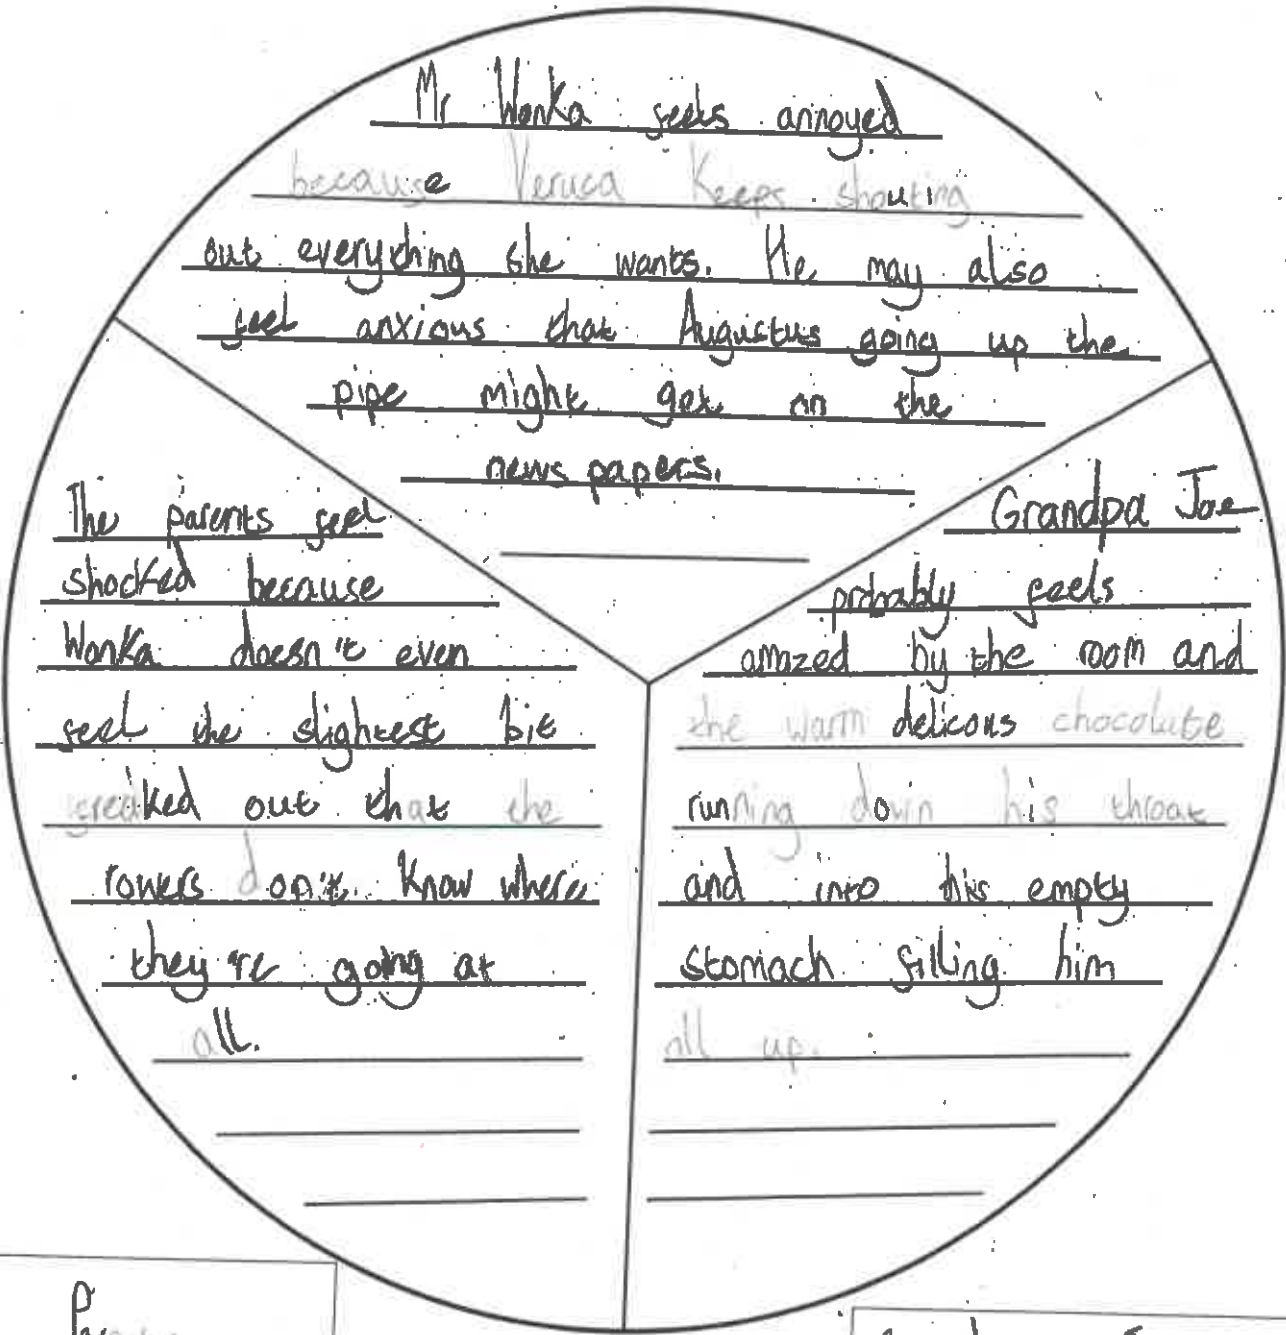 Mr Wonka feels annoyed
because Veruca Keeps shouting
out everything she wants. He may also
feel anxious that Augustus going up the
pipe might get on the
news papers.
The parents feel
shocked because
Wonka doesn't even
feel the slightest bit
freaked out that the
rowers don't know where
they're going at
all.
Grandpa Joe
probably feels
amazed by the room and
the warm delicous chocolate
running down his throat
and into his empty
stomach filling him
all up.